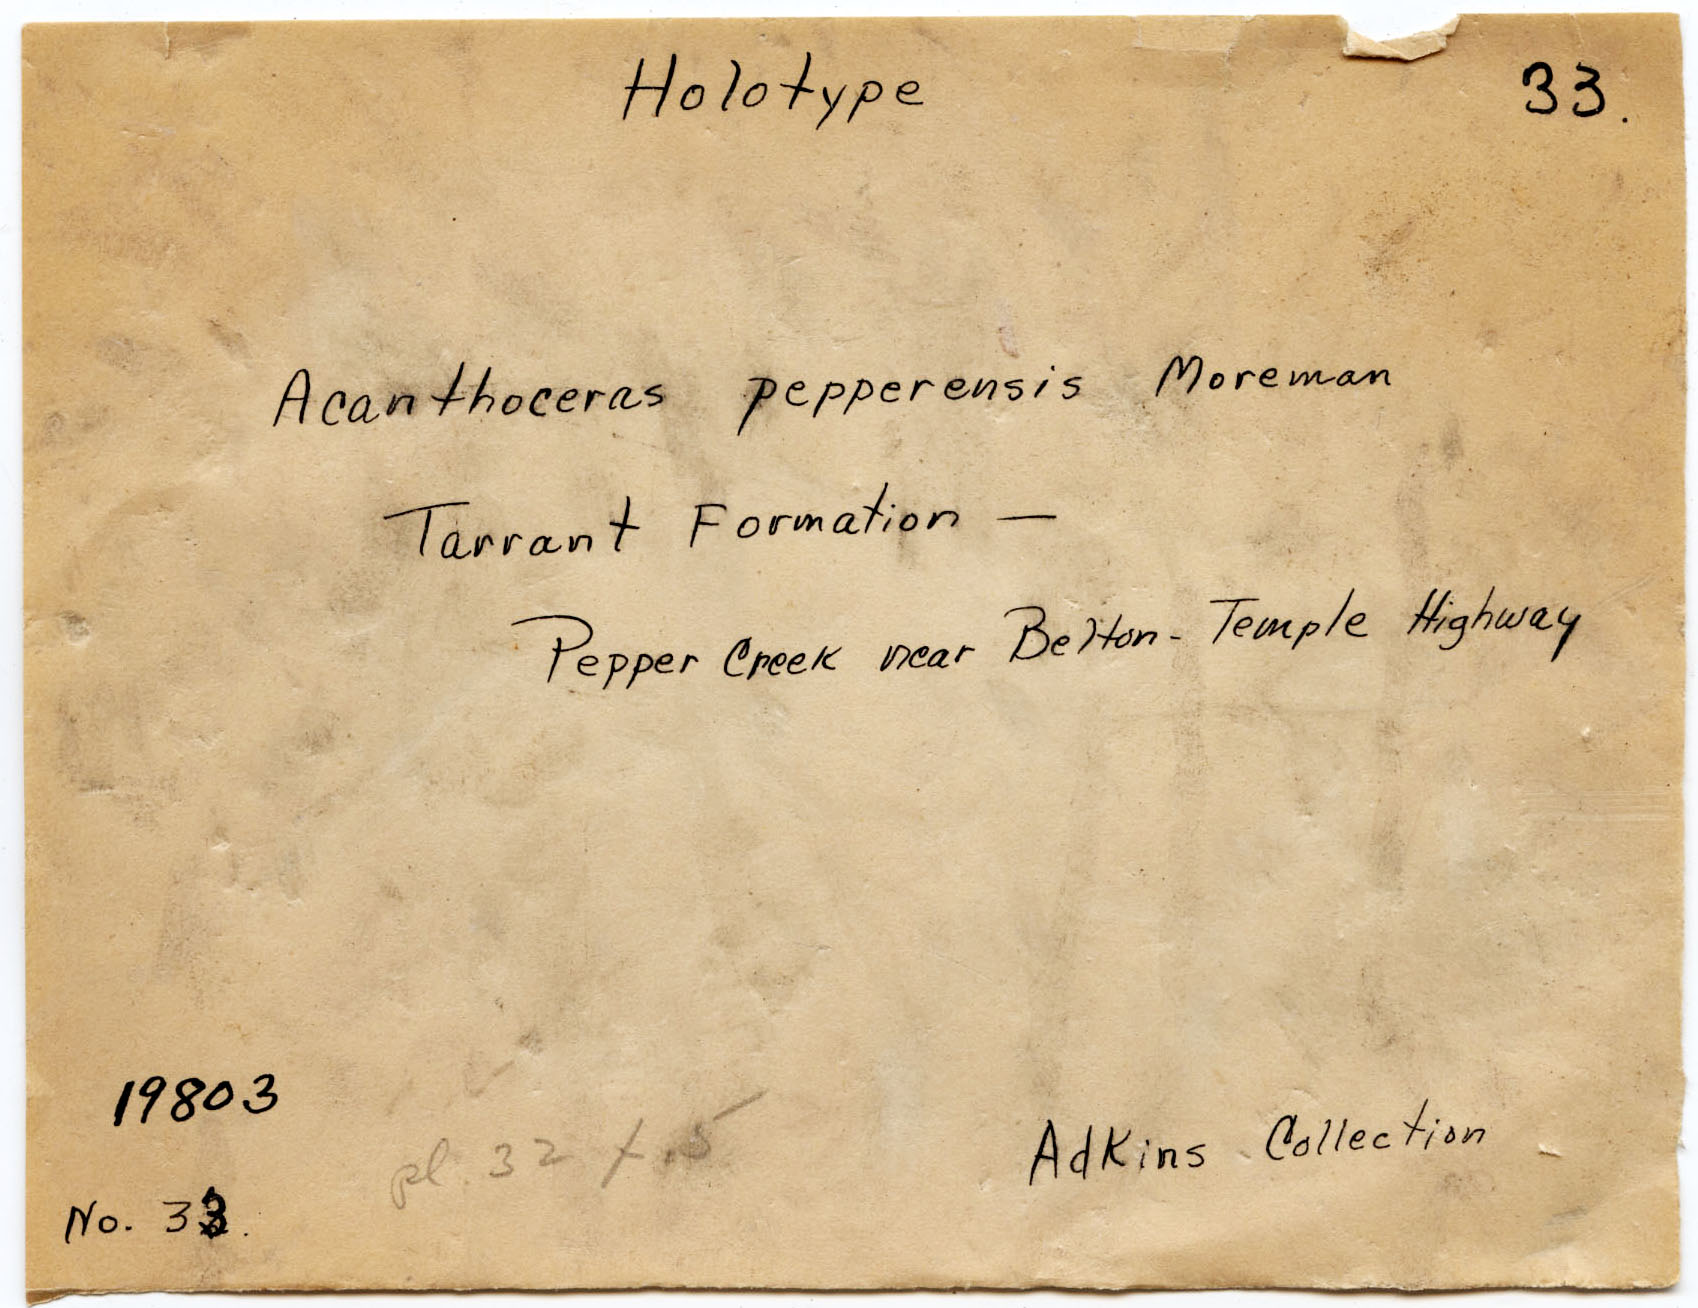 Holotype
33.
Acanthoceras pepperensis Moreman
Tarrant Formation —
Pepper Creek near Belton-Temple Highway
19803
pl. 32 f. 5
Adkins Collection
No. 33.